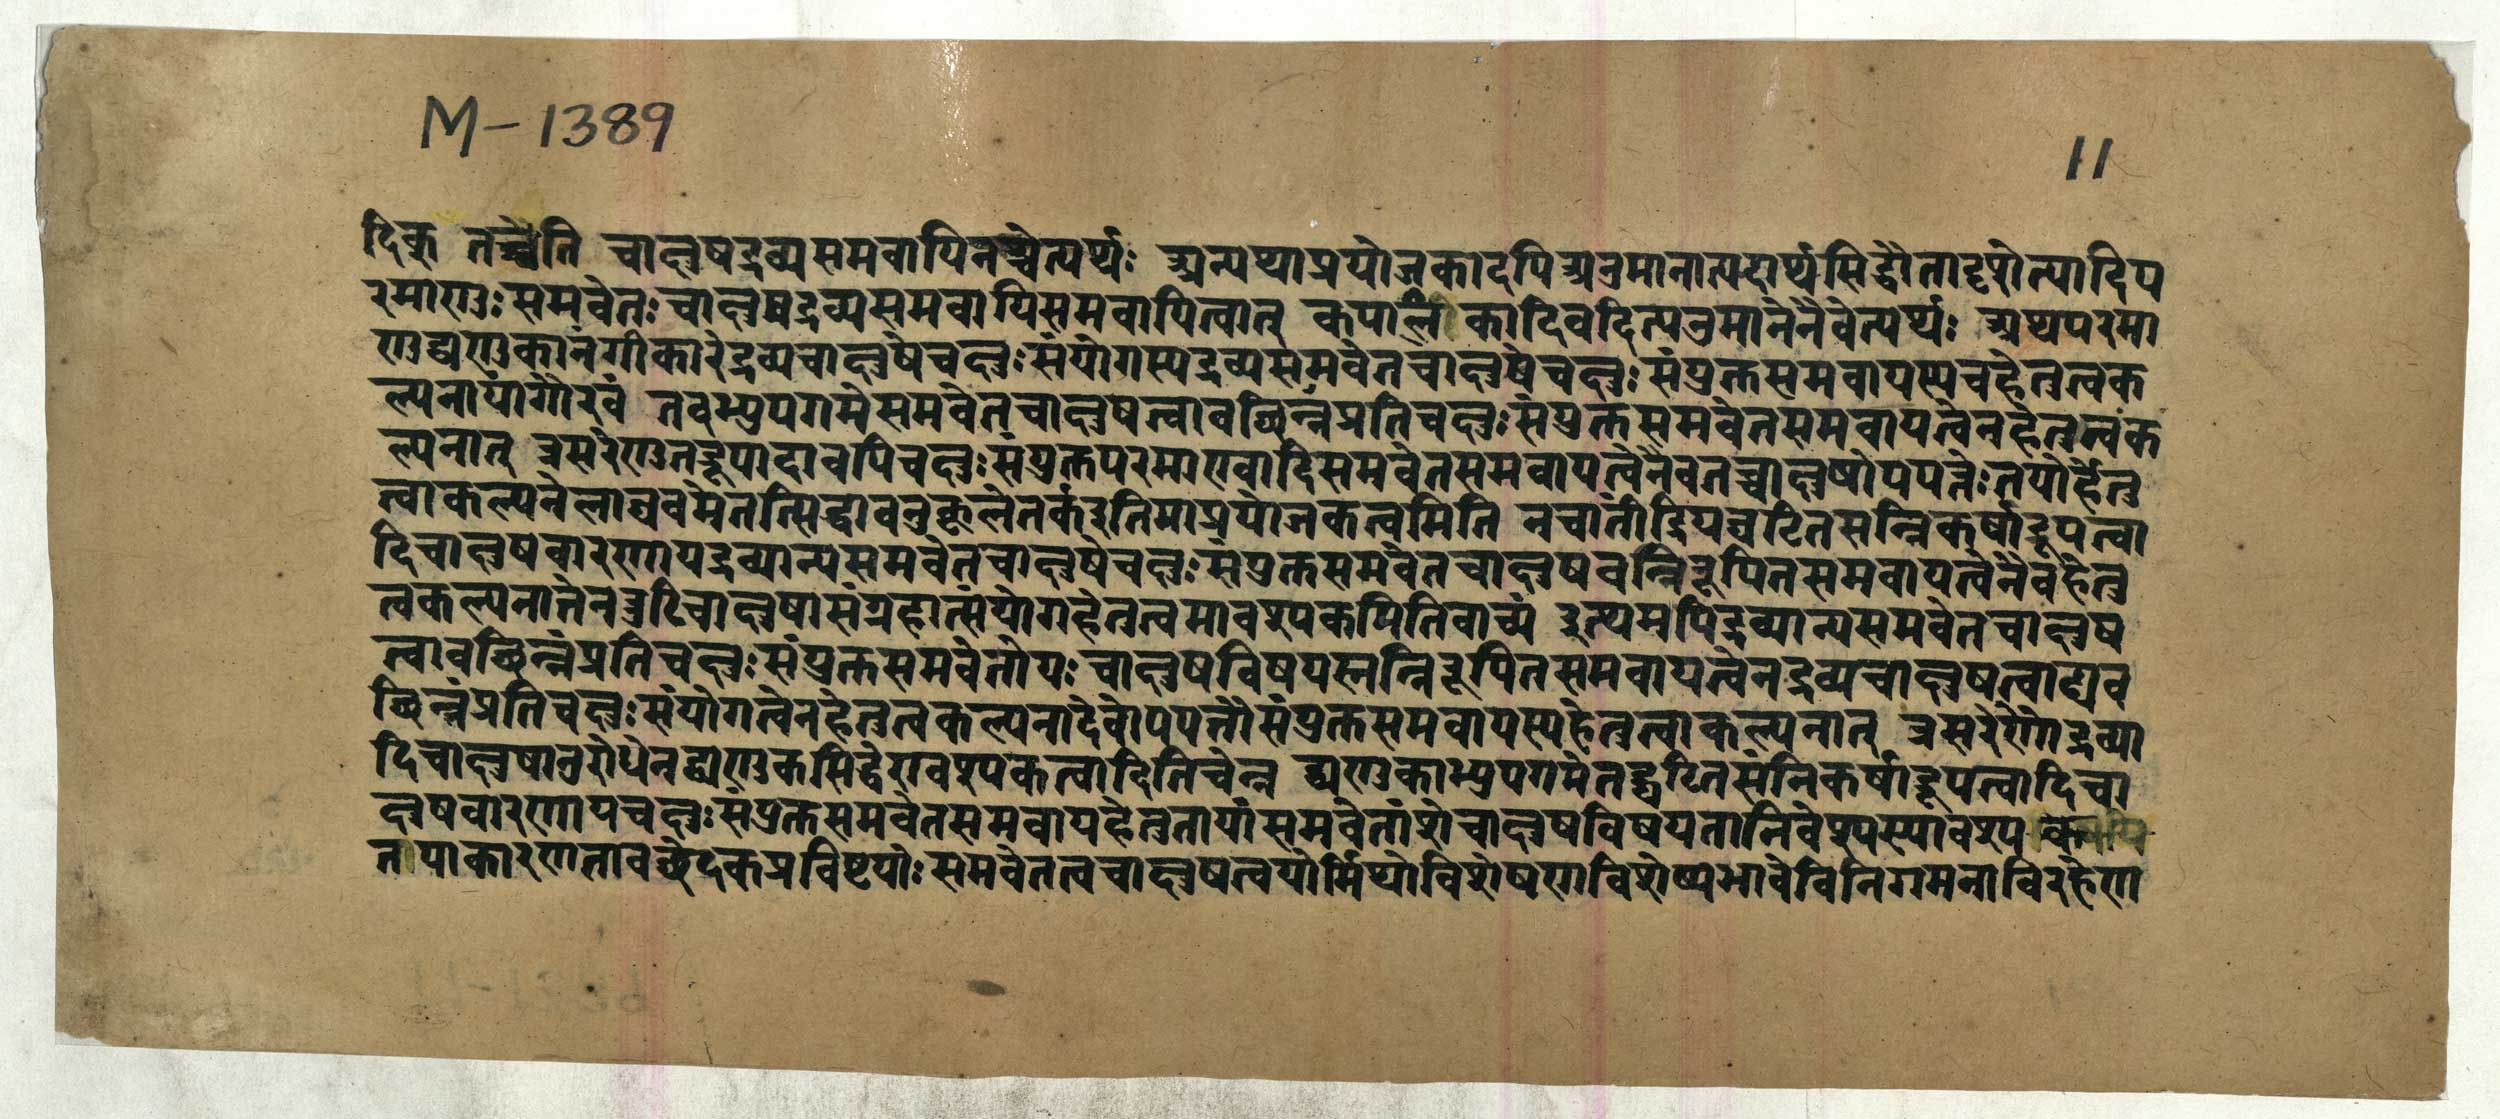 M-1389
11
दिकु तच्चेति चाक्षुषद्रव्यसमवायिनश्चेत्यर्थः अन्यथाप्रयोजकादपिअनुमानात्पदार्थसिद्धौतादृशेत्यादिप
रमाणुः समवेतः चाक्षुषद्रव्यसमवायिसमवायित्वात् कपालिकादिवदित्यनुमानेनैवेत्यर्थः अथपरमा
णुद्व्यणुकानंगीकारेद्रव्यचाक्षुषेचक्षुः संयोगस्यद्रव्यसमवेतचाक्षुषेचक्षुः संयुक्तसमवायस्यचहेतुत्वक
ल्पनायांगौरवं तदभ्युपगमेसमवेतचाक्षुषत्वावच्छिन्नंप्रतिचक्षुः संयुक्तसमवेतसमवायत्वेनहेतुत्वंक
ल्पनात् त्रसरेणुतद्रूपादावपिचक्षुः संयुक्तपरमाण्वादिसमवेतसमवायत्वेनैवतच्चाक्षुषोपपत्तेः तयोर्हेतु
त्वाकल्पनेलाघवमेतत्सिद्धावनुकूलेतर्कइतिमाप्रयोजकत्वमिति नचातींद्रियघटितसन्निकर्षाद्रूपत्वा
दिचाक्षुषवारणायद्रव्यान्यसमवेतचाक्षुषेचक्षुः संयुक्तसमवेतचाक्षुषवन्निरूपितसमवायत्वेनैवहेतु
त्वकल्पनात्तेनत्रुटिचाक्षुषासंग्रहात्संयोगहेतुत्वमावश्यकमितिवाच्यं इत्थमपिद्रव्यान्यसमवेतचाक्षुष
त्वावच्छिन्नंप्रतिचक्षुः संयुक्तसमवेतोयः चाक्षुषविषयस्तन्निरूपितसमवायत्वेनद्रव्यचाक्षुषत्वाद्यव
च्छिन्नंप्रतिचक्षुः संयोगत्वेनहेतुत्वकल्पनादेवोपपत्तौसंयुक्तसमवायस्यहेतुत्वाकल्पनात् त्रसरेणोद्रव्या
दिचाक्षुषानुरोधेनद्व्यणुकसिद्धेरावश्यकत्वादितिचेन्न द्व्यणुकाभ्युपगमेतद्घटितसंनिकर्षाद्रूपत्वादिचा
क्षुषवारणायचक्षुः संयुक्तसमवेतसमवायहेतुतायांसमवेतांशेचाक्षुषविषयतानिवेश्यस्यावश्यकतया
तयाकारणतावच्छेदकप्रविष्टयोः समवेतत्वचाक्षुषत्वयोर्मिथोविशेषणविशेष्यभावेविनिगमनाविरहेण